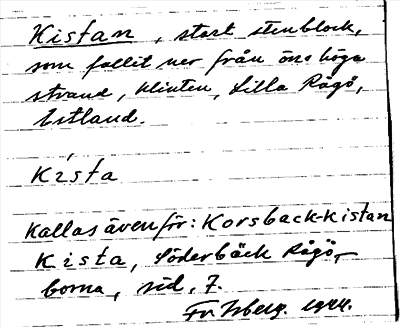 Kistan, stort stenblock,
som fallit ner från öns höga
strand, klinten, Lilla Rågö,
Estland.
Kista
Kallas även för: Korsback-kistan
Kista, Söderbäck Rågö-
borna, sid. 7.
Fr. Isberg. 1944.